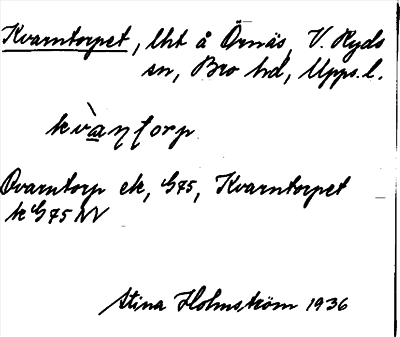 Kvarntorpet, lht å Örnäs, V. Ryds
sn, Bro hd, Upps. l.
kvàŋtorp
Qvarntorp ek, G75, Kvarntorpet
k G75 NV
Stina Holmström 1936